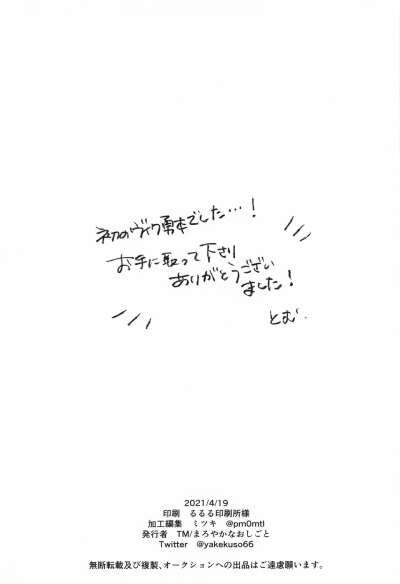 初のヴィク勇本でした…!
お手に取って下さり
ありがとうござい
ました!
とむ.
2021/4/19
印刷 るるる印刷所様
加工編集 ミツキ @pm0mtl
発行者 TM/まろやかなおしごと
Twitter @yakekuso66
無断転載及び複製、オークションへの出品はご遠慮願います。